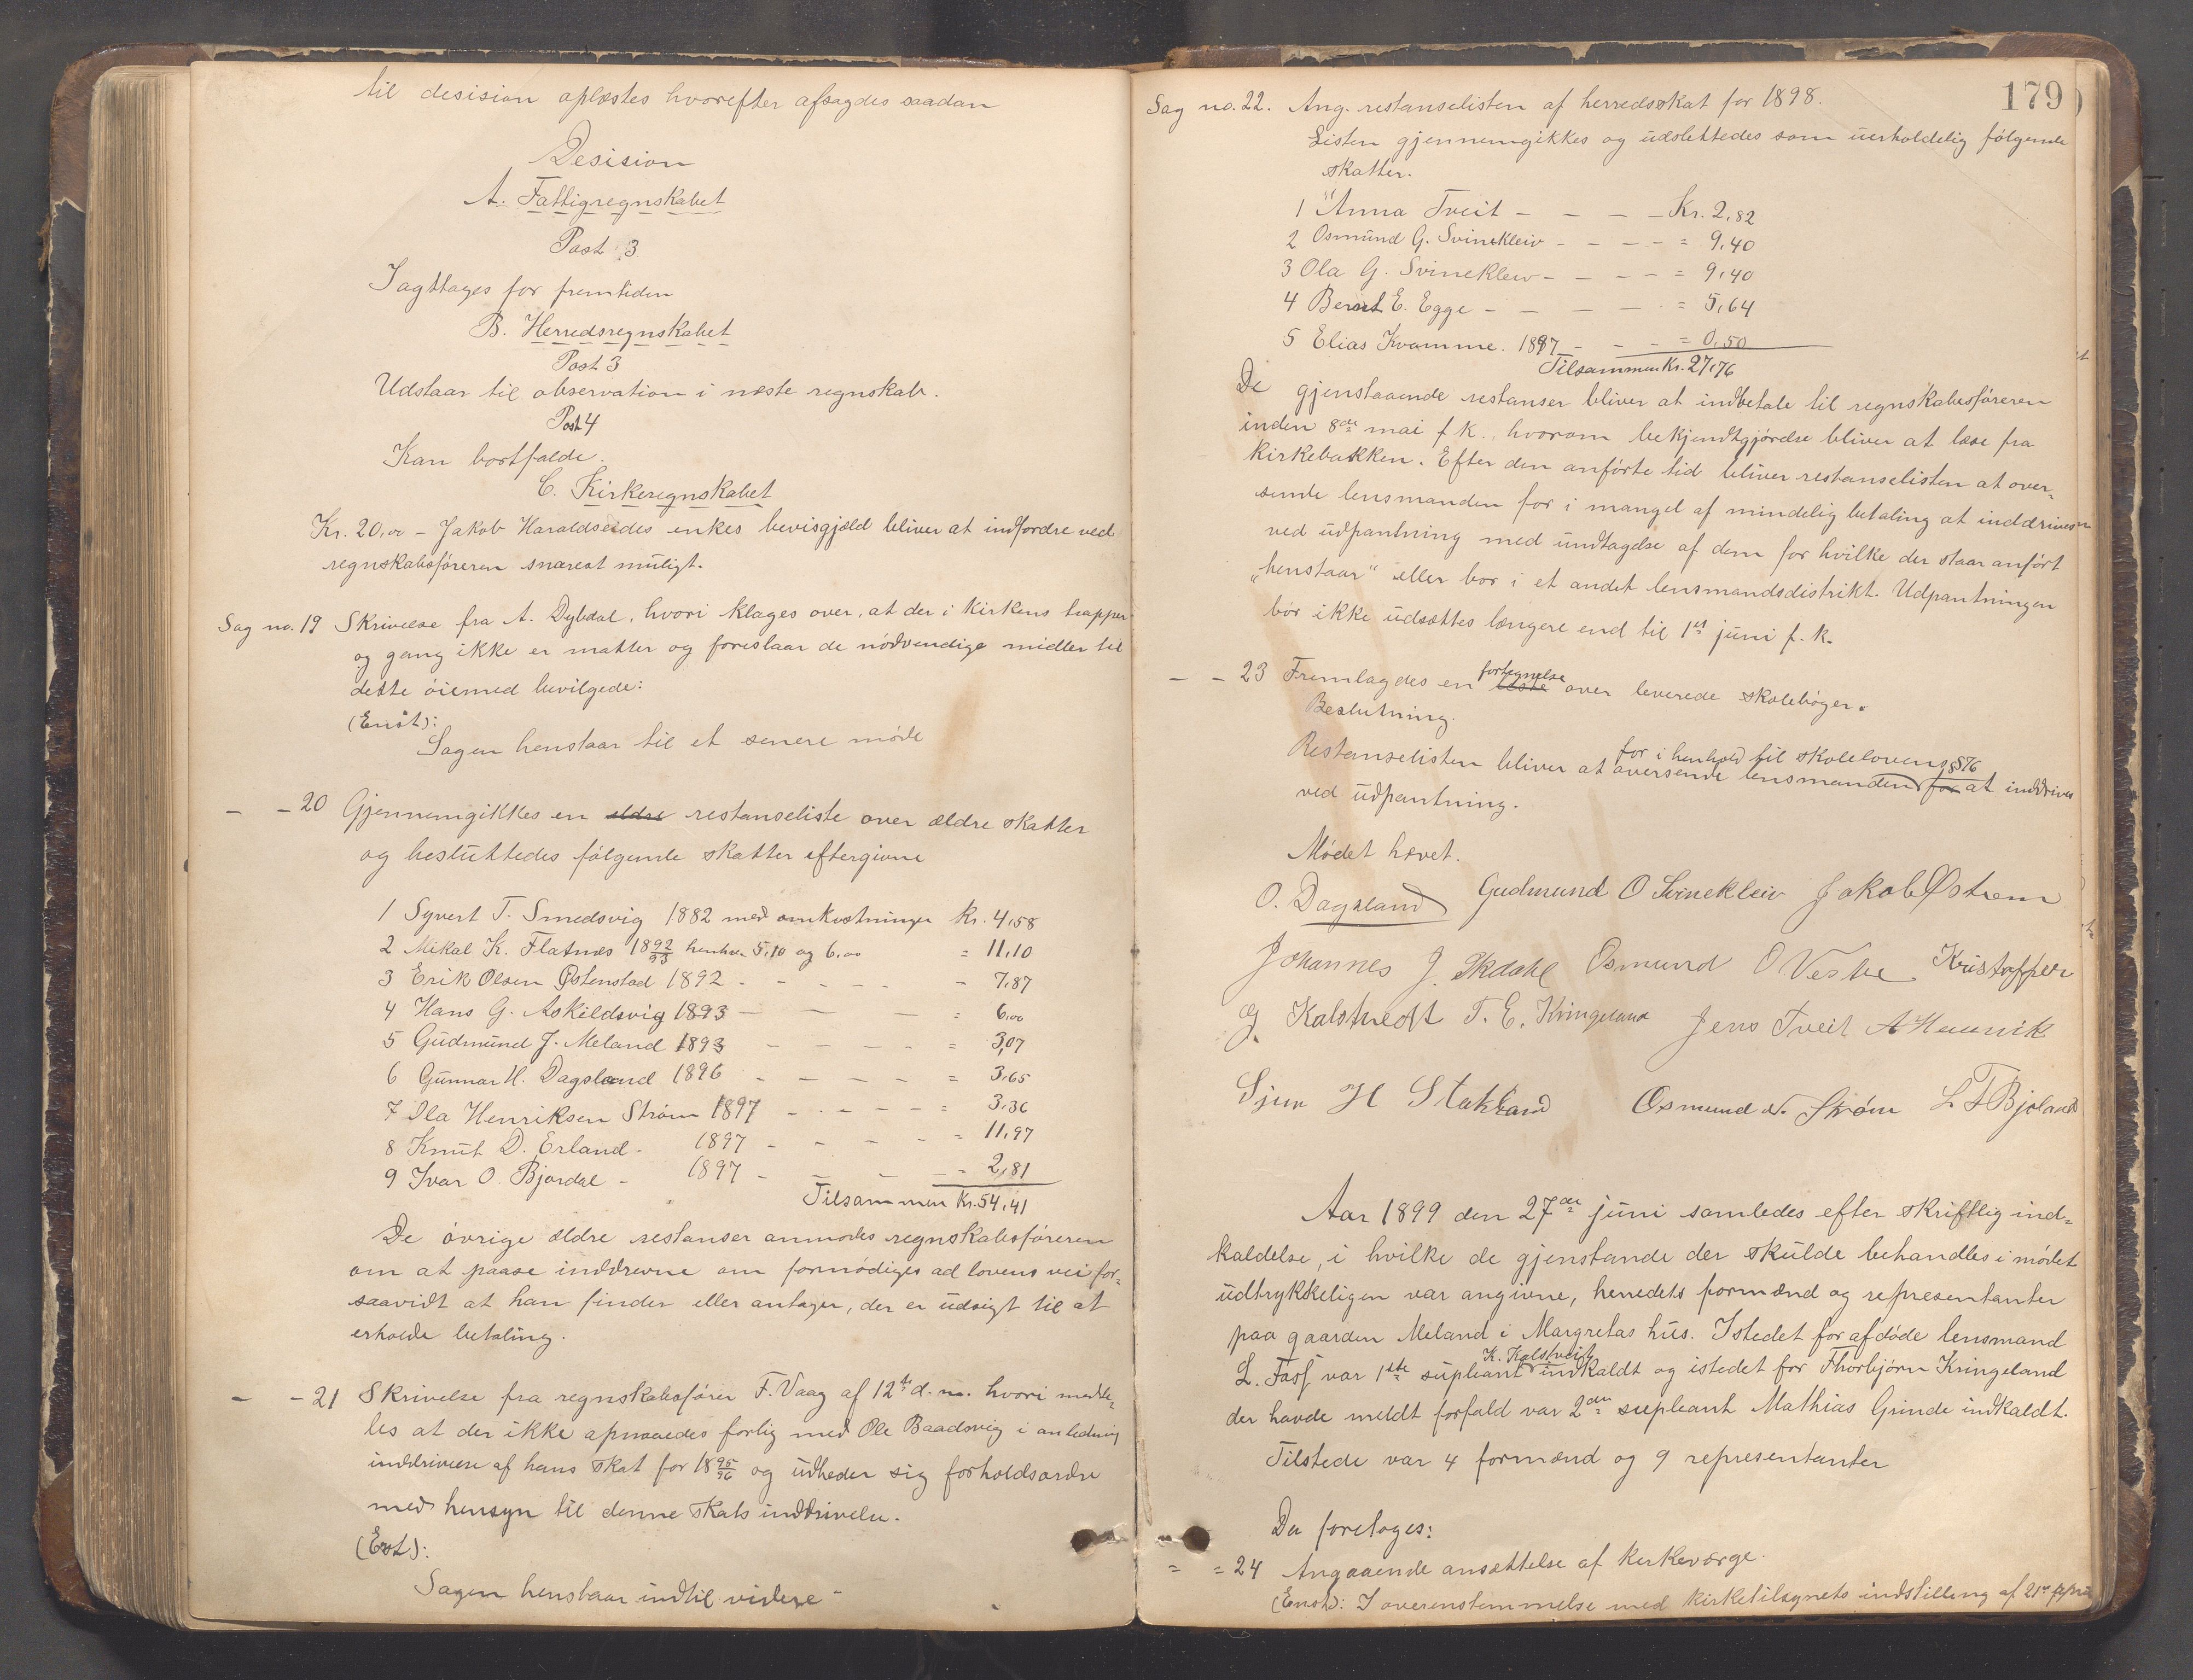 til desision oplæstes hvorefter afsagdes saadan
Desision
A. Fattigregnskabet
Post 3
Iagttages for fremtiden
B. Herredsregnskabet
Post 3
Udstaar til observation i næste regnskab.
Post 4
Kan bortfalde.
C. Kirkeregnskabet
Kr. 20,00 – Jakob Haraldseides enkes bevisgjæld bliver at indfordre ved
regnskabsføreren snarest muligt.
Sag no. 19 Skrivelse fra A. Dybdal, hvori klages over, at der i kirkens trapper
og gang ikke er matter og foreslaar de nødvendige midler til
dette øiemed bevilgede:
(Enst):
Sagen henstaar til et senere møde
– – 20 Gjennemgikkes en ældre restanseliste over ældre skatter
og besluttedes følgende skatter eftergivne
1 Syvert T. Smedsvig 1882 med omkostninger Kr. 4,58
2 Mikal K. Flatnes 1892/93 henhv. 5,10 og 6,00 = 11,10
3 Erik Olsen Østenstad 1892 - - - - - = 7,87
4 Hans G. Askildsvig 1893 — — — = 6,00
5 Gudmund J. Meland 1893 - - - - = 3,07
6 Gunnar H. Dagsland 1896 - - - - = 3,65
7 Ola Henriksen Strøm 1897 - - - - = 3,36
8 Knut D. Erland - 1897 - - - - = 11,97
9 Ivar O. Bjordal - 1897 - - - - = 2,81
Tilsammen Kr. 54,41
De øvrige ældre restanser anmodes regnskabsføreren
om at paase inddrevne om fornødiges ad lovens vei for=
saavidt at han finder eller antager, der er udsigt til at
erholde betaling.
– – 21 Skrivelse fra regnskabsfører F. Vaag af 12te d. m. hvori medde=
les at der ikke opnaaedes forlig med Ole Baadsvig i anledning
inddrivelse af hans skat for 1895/96 og udbeder sig forholdsordre
med hensyn til denne skats inddrivelse.
(Enst):
Sagen henstaar indtil videre –
179
Sag no. 22. Ang. restanselisten af herredsskat for 1898.
Listen gjennemgikkes og udslettedes som uerholdelig følgende
skatter.
1 Anna Tveit – – – – Kr. 2,82
2 Osmund G. Svinekleiv – – – – = 9,40
3 Ola G. Svinekleiv – – – – = 9,40
4 Bernt E. Egge – – – – = 5,64
5 Elias Kvamme. 1897 – – – = 0,50
Tilsammen Kr. 27,76
De gjenstaaende restanser bliver at indbetale til regnskabsføreren
inden 8de mai f. k., hvorom bekjendtgjørelse bliver at læse fra
kirkebakken. Efter den anførte tid bliver restanselisten at over=
sende lensmanden for i mangel af mindelig betaling at inddrives
ved udpantning med undtagelse af dem for hvilke der staar anført
„henstaar“ eller bor i et andet lensmandsdistrikt. Udpantningen
bør ikke udsættes længere end til 1st juni f. k.
– – 23 Fremlagdes en liste fortegnelse over leverede skolebøger.
Beslutning.
for i henhold til skolelovens § 76
Restanselisten bliver at oversende lensmanden for at inddrives
ved udpantning.
Mødet hævet.
O. Dagsland Gudmund O Svinekleiv Jakob Østrem
Johannes J. Skdahl Osmund O Vestre Kristoffer
J. Kalstvedt T. E. Kringeland Jens Tveit
Sjur H Stakland Osmund N. Strøm L T Bjoland
Aar 1899 den 27de juni samledes efter skriftlig ind=
kaldelse, i hvilke de gjenstande der skulde behandles i mødet
udtrykkeligen var angivne, herredets formænd og representanter
paa gaarden Meland i Margretas hus. Istedet for afdøde lensmand
K. Kalstveit
L. Faof var 1ste supleant indkaldt og istedet for Thorbjørn Kringeland
der havde meldt forfald var 2den supleant Mathias Grinde indkaldt.
Tilstede var 4 formænd og 9 representanter
Da foretoges:
= = 24 Angaaende ansættelse af kirkeværge.
(Enst): I overenstemmelse med kirketilsynets indstilling af 21de april